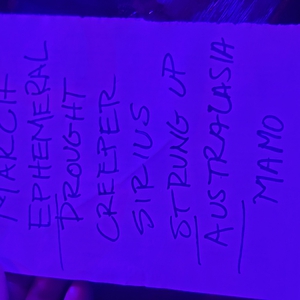 MARCH
EPHEMERAL
DROUGHT
CREEPER
SIRIUS
STRUNG UP
AUSTRALASIA
MANO